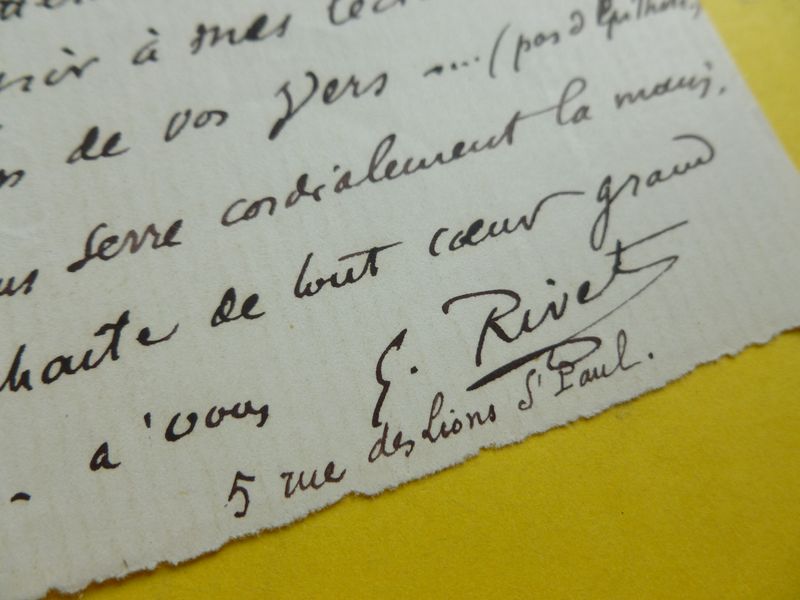 à mes
de vos Vers .... (pas d'Epithète,
serre cordialement la main,
haite de tout cœur grand
- à vous G. Rivet
5 rue des Lions St Paul.